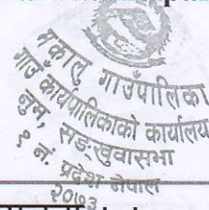 मकालु गाउँपालिका
गाउँ कार्यपालिकाको कार्यालय
नुम, सङ्खुवासभा
१ नं. प्रदेश नेपाल
२०७३